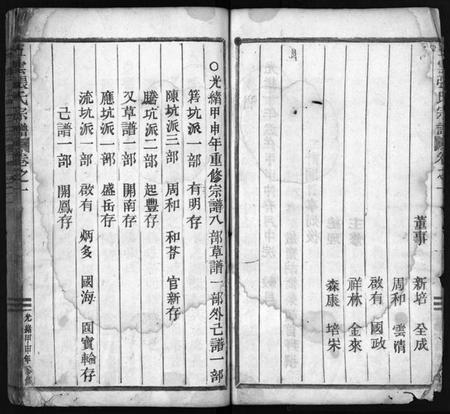 董事
新培 全成
周和 雲清
啟有 國政
祥林 金來
森康 培宋
○光緒甲申年重修宗譜八部草譜一部外己譜一部
箬坑派一部 有明存
陳坑派三部 周和 和荅 官新存
勝坑派二部 起豐存
又草譜一部 開南存
應坑派一部 盛岳存
流坑派一部 啟有 炳多 國海 寶輪存
己譜一部 開鳳存
張氏宗譜
卷之一
光緒甲申年